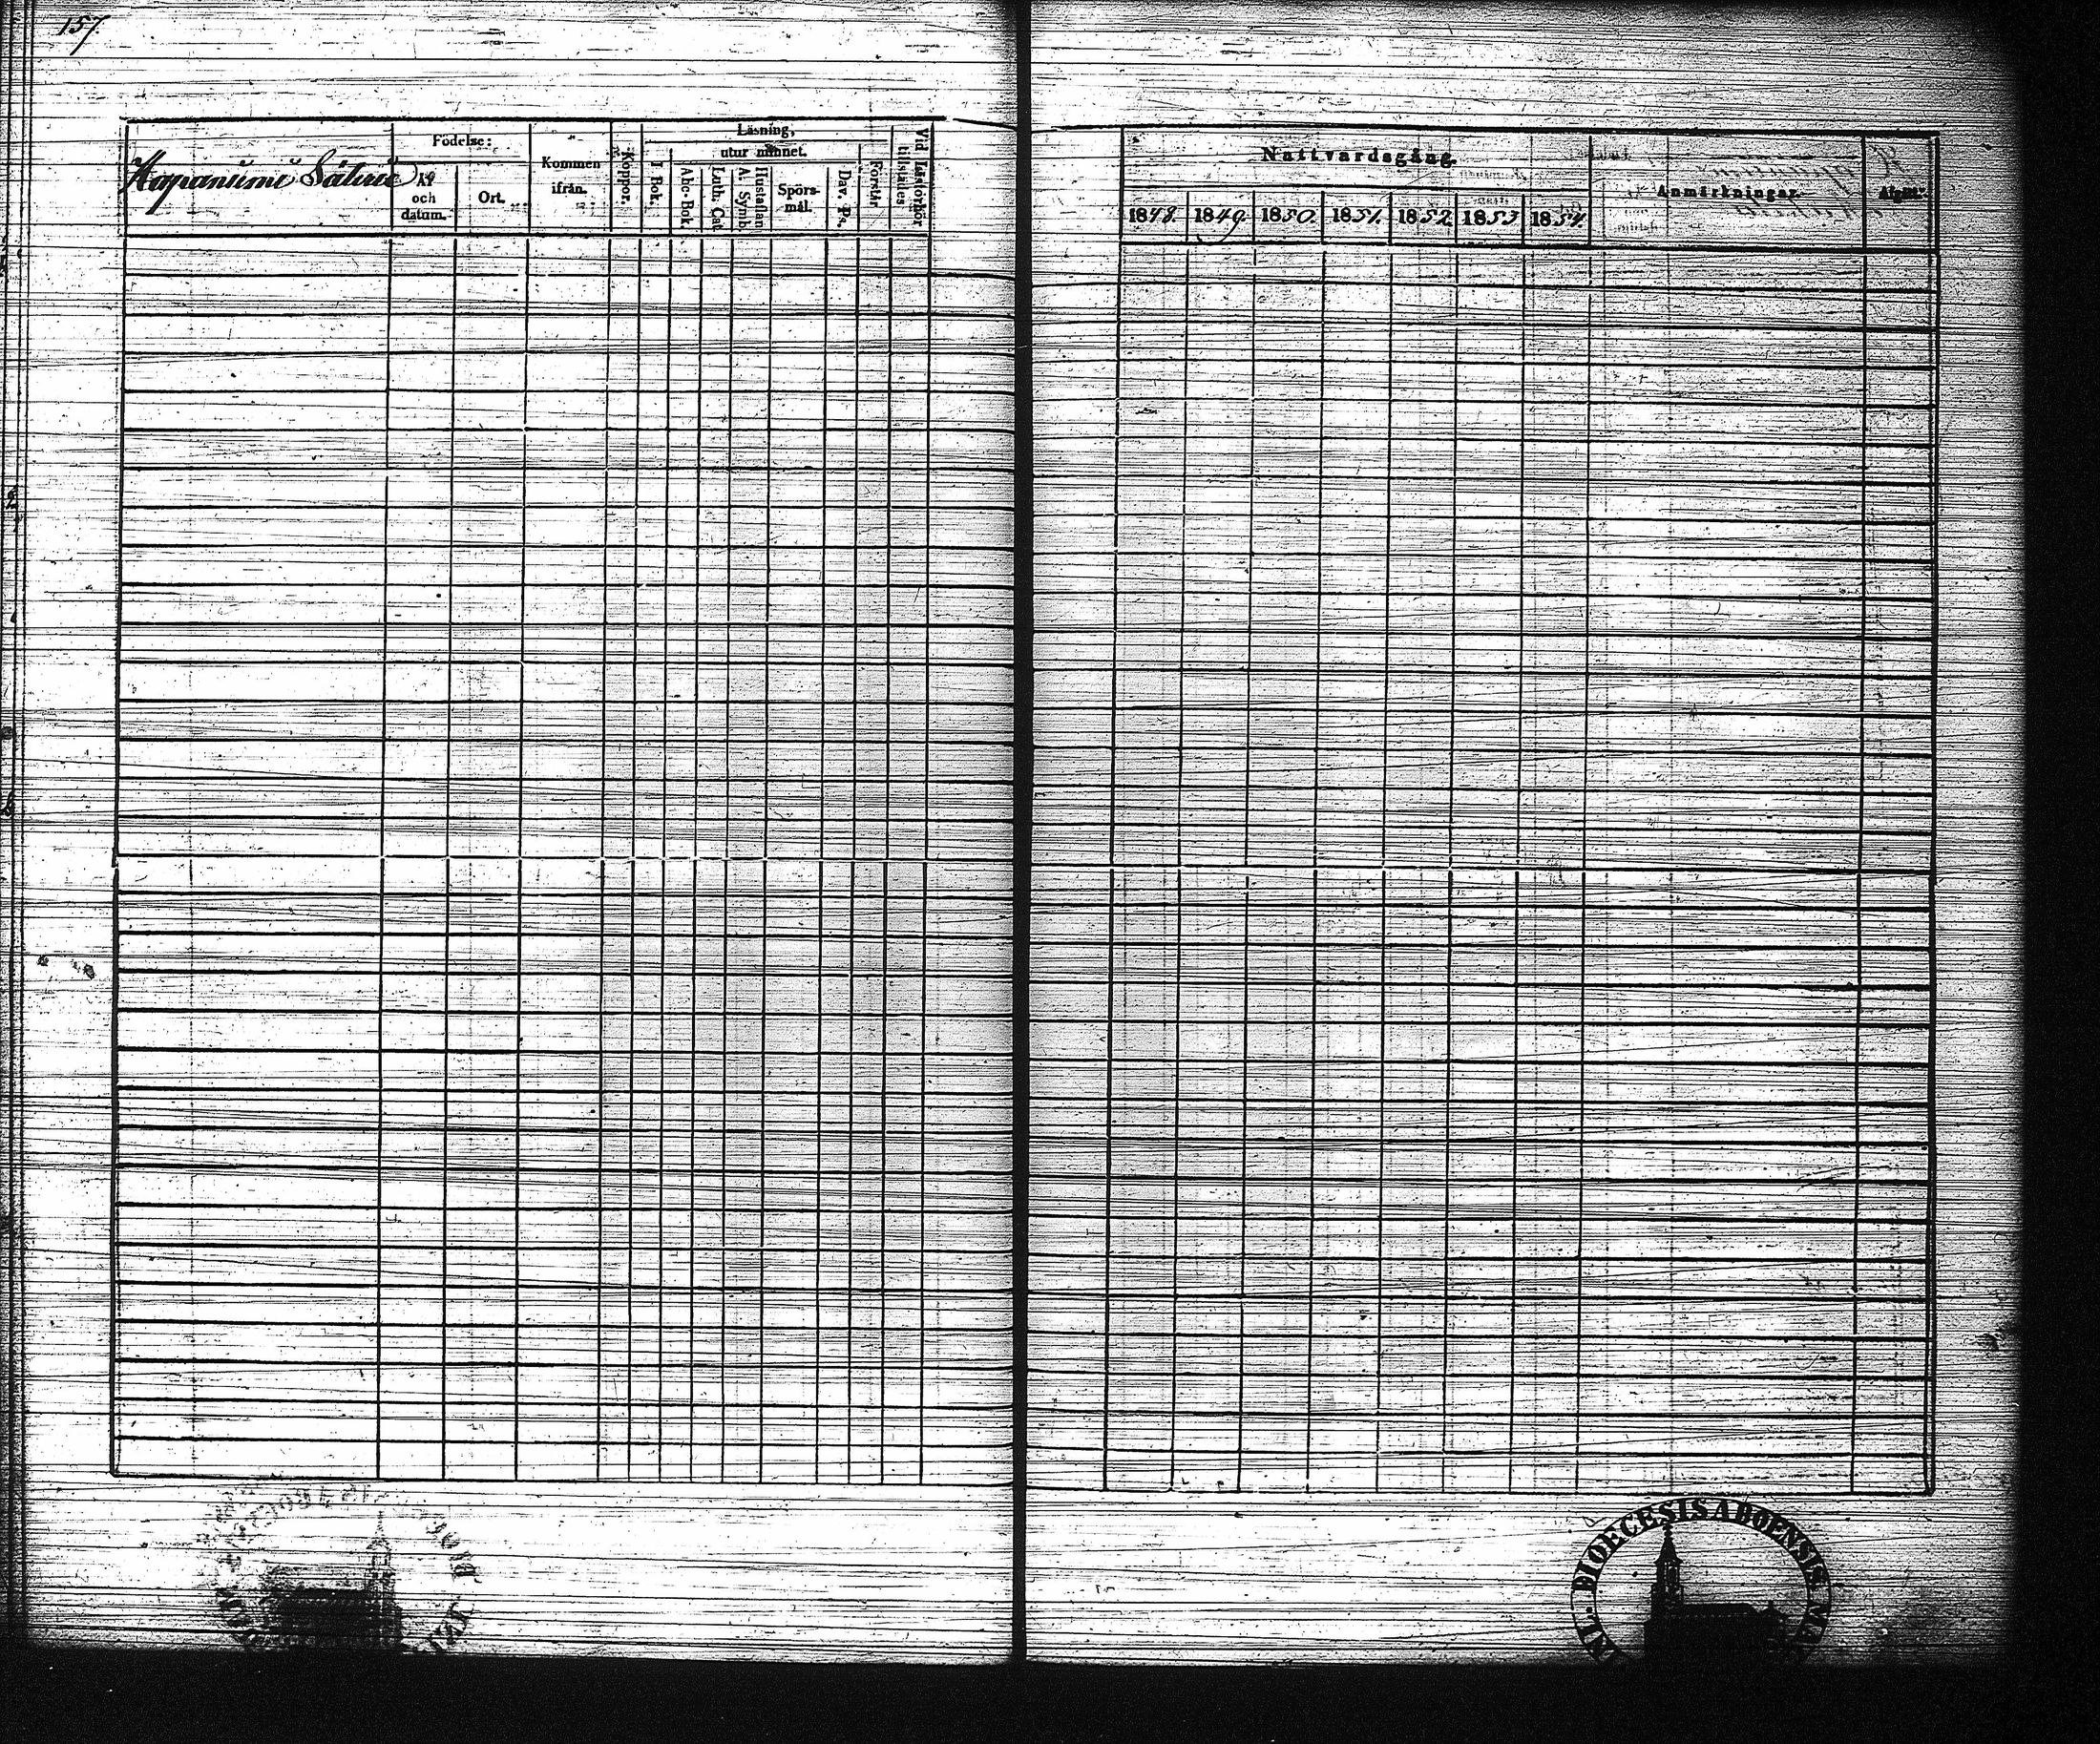 157.
Hapaniemi Säteri
Födelse:
År
och
datum.
Ort.
Kommen
ifrån.
Koppor.
Läsning,
utur minnet.
I Bok.
Abc-Bok
Luth. Cat.
A. Symb.
Hustaflan
Spörs-
mål.
Dav. Ps.
Förstår
Vid Läsförhör
tillstädes
Nattvardsgång.
1848.
1849.
1850.
1851.
1852.
1853
1854.
Anmärkningar.
DIOECESIS ABOENSIS